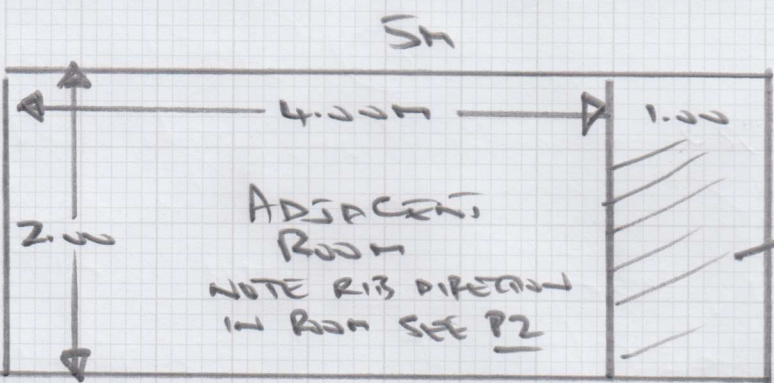 5M
4.00M
1.00
2.00
ADJACENT
ROOM
NOTE RIB DIRECTION
IN ROOM SEE P2